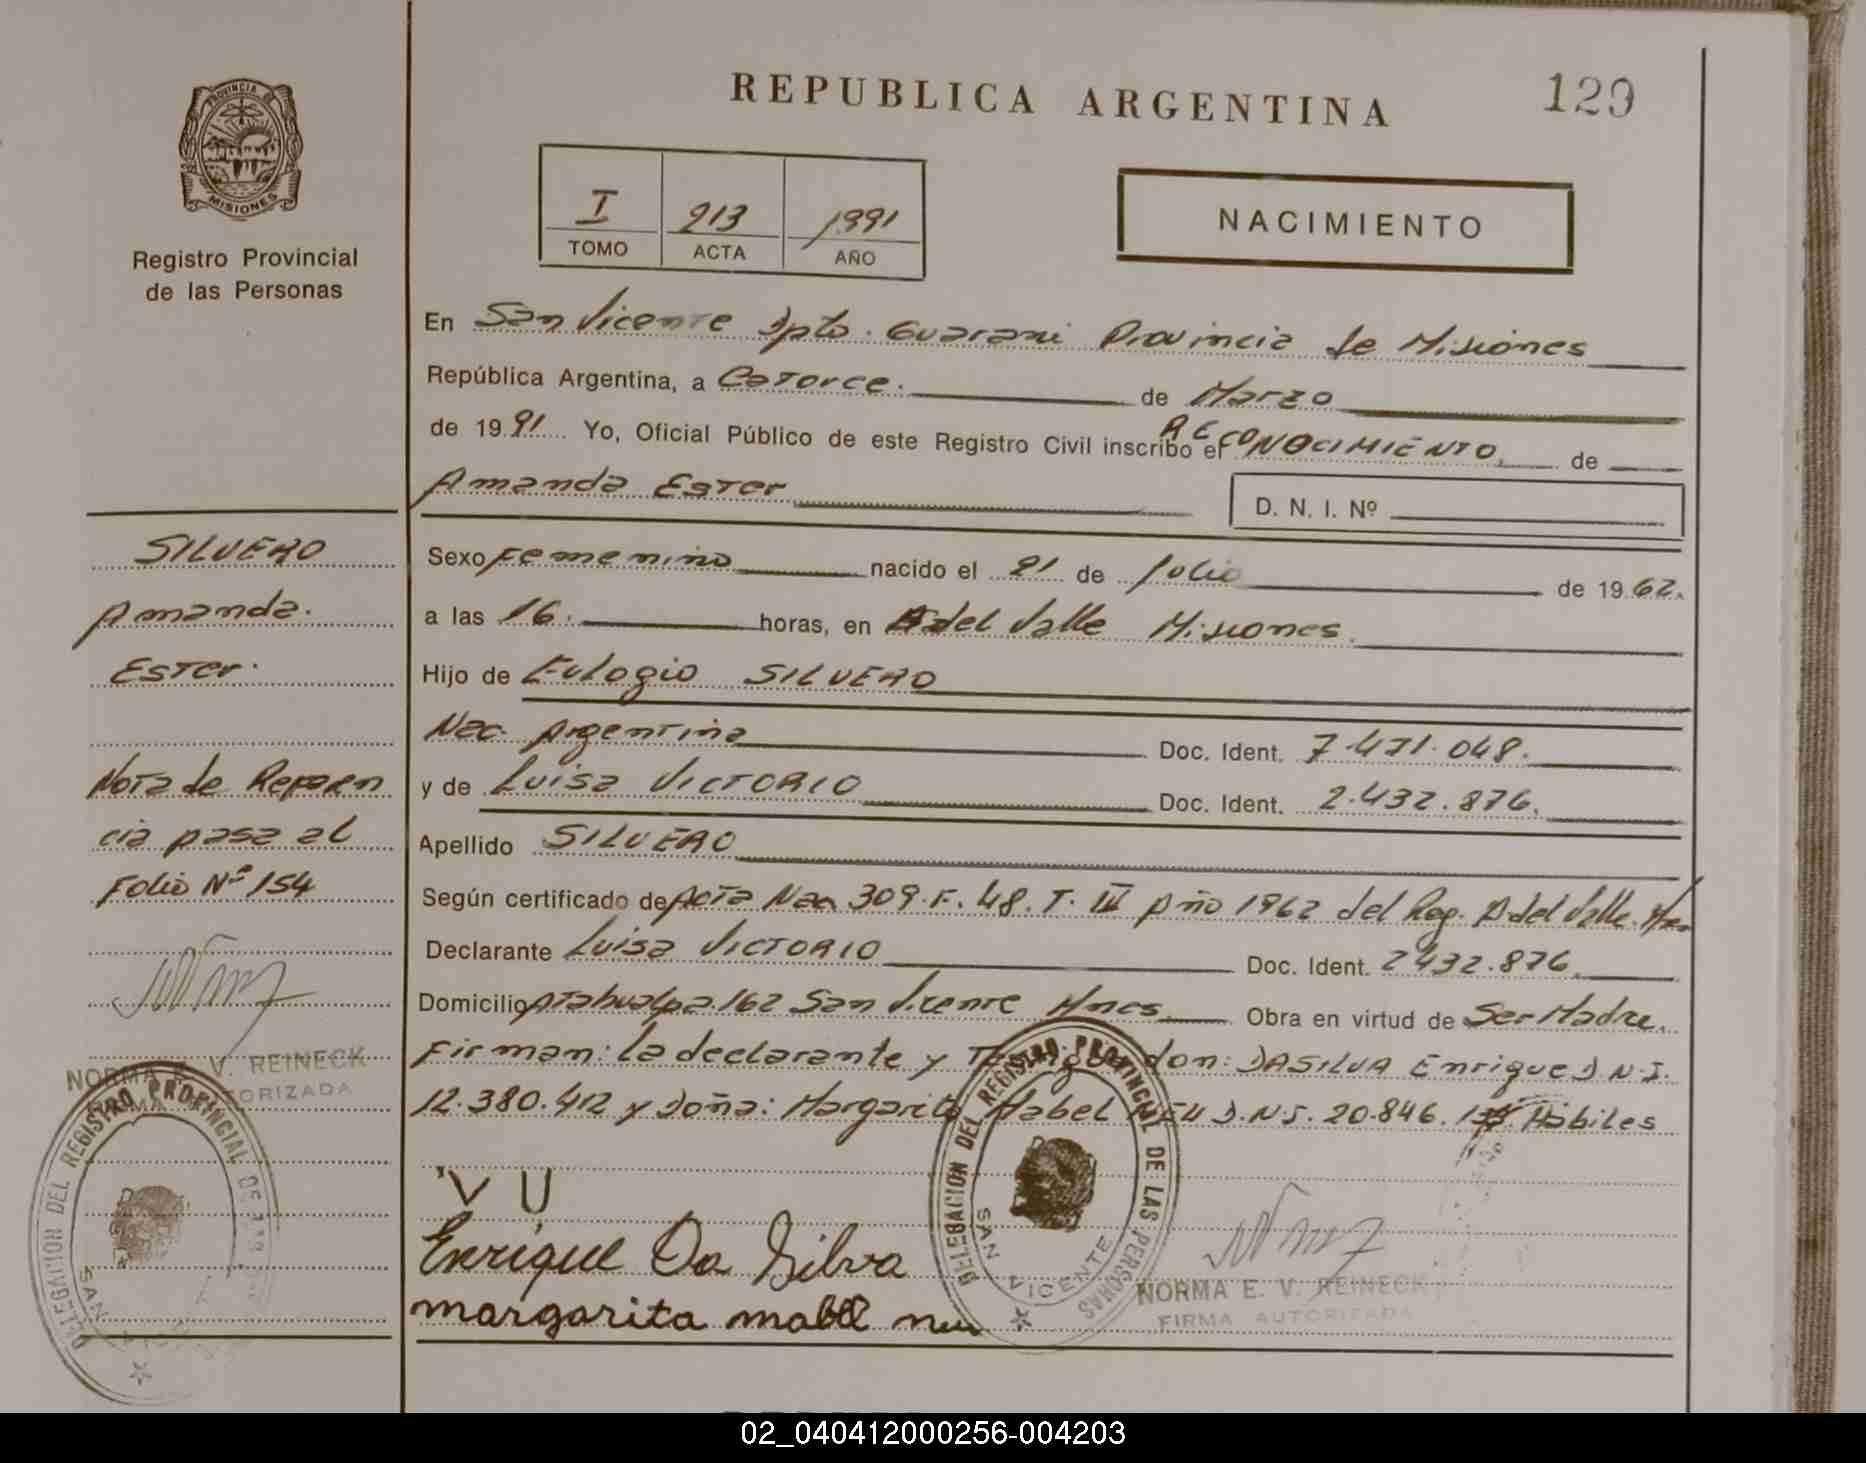 REPUBLICA ARGENTINA
129
PROVINCIA DE
MISIONES
Registro Provincial
de las Personas
I 213 1991
TOMO ACTA AÑO
NACIMIENTO
En San Vicente Dpto. Guarani Provincia de Misiones
República Argentina, a Catorce. de Marzo
de 1991 Yo, Oficial Público de este Registro Civil inscribo el RECONOCIMIENTO de
Amanda Ester
D. N. I. Nº
SILVERO
Amanda.
Ester.
Nota de Referen
cia pasa al
Folio Nº 154
NORMA E. V. REINECK
FIRMA AUTORIZADA
DELEGACION DEL REGISTRO PROVINCIAL DE LAS
SAN VICENTE
Sexo Femenino nacido el 21 de Julio de 1962.
a las 16. horas, en A del Valle Misiones.
Hijo de Eulogio SILVERO
Nac. Argentina Doc. Ident. 7.471.048.
y de Luisa VICTORIO Doc. Ident. 2.432.876.
Apellido SILVERO
Según certificado de Acta 309.F.48.T.III Año 1962 del Reg. A del Valle.
Declarante Luisa VICTORIO Doc. Ident. 2432.876.
Domicilio Atahualpa.162 San Vicente Mnes. Obra en virtud de Ser Madre.
Firman: la declarante y Testigos don: DASILVA Enrique D.N.I.
12.380.412 y Doña: Margarita Mabel NEU D.N.I. 20.846. Hábiles
V U
Enrique Da Silva
margarita mabel neu
DELEGACION DEL REGISTRO PROVINCIAL DE LAS PERSONAS
SAN VICENTE
NORMA E. V. REINECK
FIRMA AUTORIZADA
02_040412000256-004203